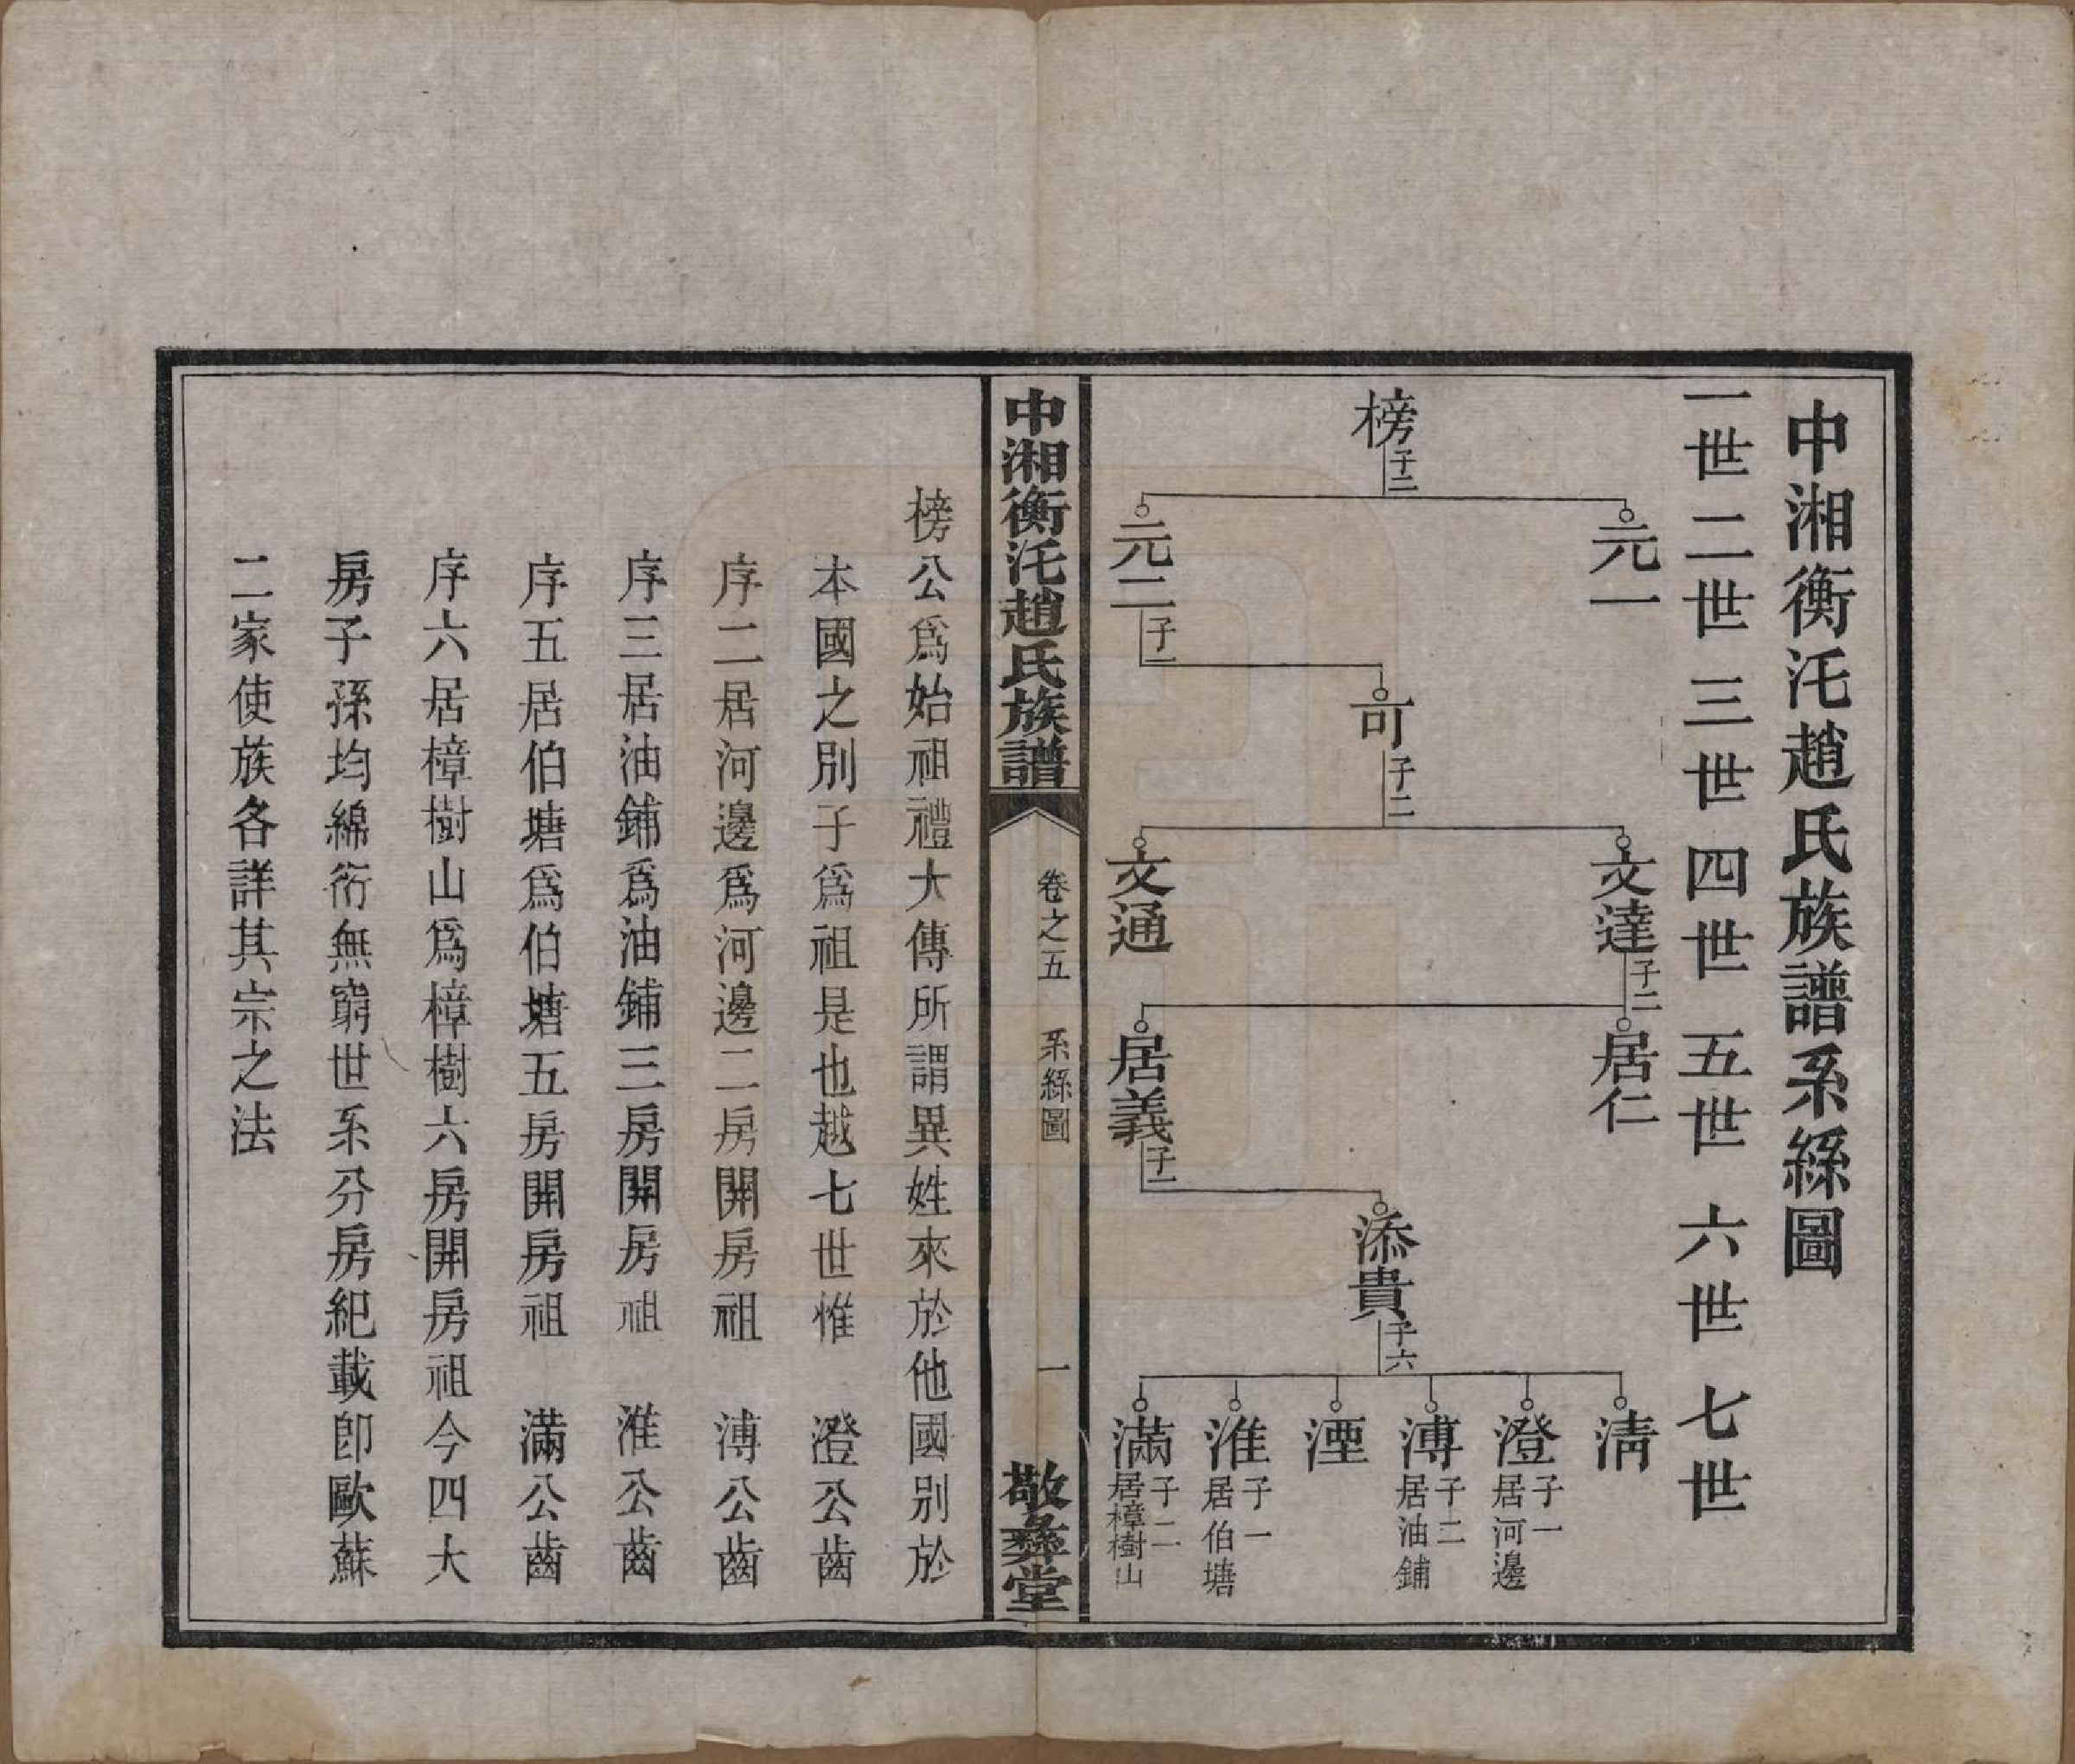 中湘衡汑趙氏族譜系綠圖
一世 二世 三世 四世 五世 六世 七世
榜 子二
元一
元二 子一
可 子二
文達 子二
文通
居仁
居義 子一
添貴 子六
清
澄 子一 居河邊
溥 子二 居油鋪
湮
淮 子一 居伯塘
滿 子二 居樟樹山
中湘衡汑趙氏族譜 卷之五 系綠圖 一 敬彝堂
榜公爲始祖禮大傳所謂異姓來於他國別於
本國之別子爲祖是也越七世惟 澄公齒
序二居河邊爲河邊二房開房祖 溥公齒
序三居油鋪爲油鋪三房開房祖 淮公齒
序五居伯塘爲伯塘五房開房祖 滿公齒
序六居樟樹山爲樟樹六房開房祖今四大
房子孫均綿衍無窮世系分房紀載卽歐蘇
二家使族各詳其宗之法